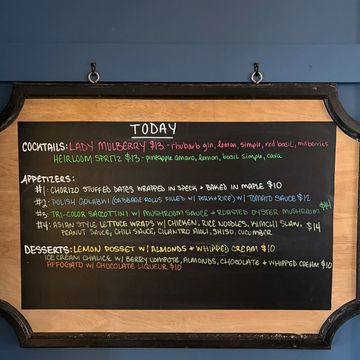 TODAY
COCKTAILS: LADY MULBERRY $13 - rhubarb gin, lemon, simple, red basil, mulberries
HEIRLOOM SPRITZ $13 - pineapple amaro, lemon, basil simple, cava
APPETIZERS:
#1: CHORIZO STUFFED DATES WRAPPED IN SPECK + BAKED IN MAPLE $10
#2: POLISH GOLABKI (CABBAGE ROLLS FILLED w/ PORK + RICE) w/ TOMATO SAUCE $12
#3: TRI-COLOR SACCOTTINI w/ MUSHROOM SAUCE + ROASTED OYSTER MUSHROOM $14
#4: ASIAN STYLE LETTUCE WRAPS w/ CHICKEN, RICE NOODLES, KIMCHI SLAW, $14
PEANUT SAUCE, CHILI SAUCE, CILANTRO AIOLI, SHISO, CUCUMBER
DESSERTS: LEMON POSSET w/ ALMONDS + WHIPPED CREAM $10
ICE CREAM CHALICE w/ BERRY COMPOTE, ALMONDS, CHOCOLATE + WHIPPED CREAM $10
AFFOGATO w/ CHOCOLATE LIQUEUR $10